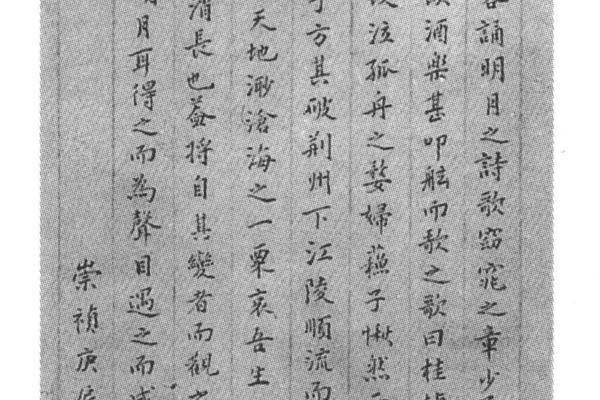 誦明月之詩歌窈窕之章少
酒樂甚叩舷而歌之歌曰桂
泣孤舟之嫠婦蘓子愀然
方其破荆州下江陵順流而
天地渺滄海之一粟哀吾生
消長也葢将自其變者而觀
月耳得之而為聲目遇之而成
崇禎庚